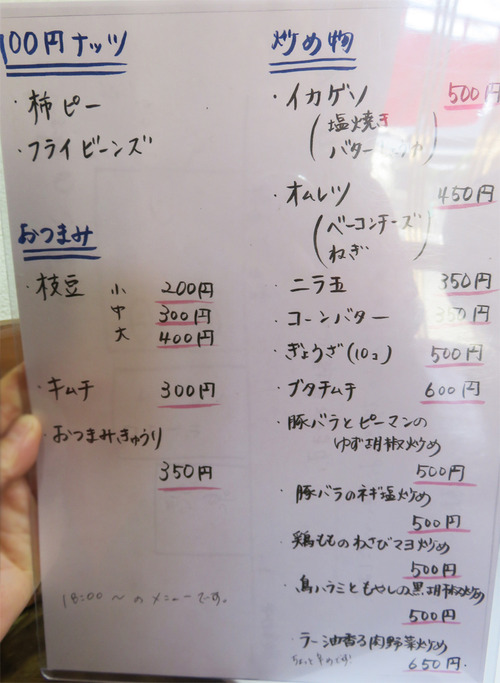 100円ナッツ
・柿ピー
・フライビーンズ
おつまみ
・枝豆 小 200円
中 300円
大 400円
・キムチ 300円
・おつまみきゅうり
350円
18:00〜のメニューです。
炒め物
・イカゲソ 500円
(塩焼き
バター
・オムレツ 450円
(ベーコンチーズ
ねぎ
・ニラ玉 350円
・コーンバター 350円
・ぎょうざ(10コ) 500円
・ブタチムチ 600円
・豚バラとピーマンの
ゆず胡椒炒め
500円
・豚バラのネギ塩炒め
500円
・鶏もものわさびマヨ炒め
500円
・鳥ハラミともやしの黒胡椒炒め
500円
・ラー油香る肉野菜炒め
650円